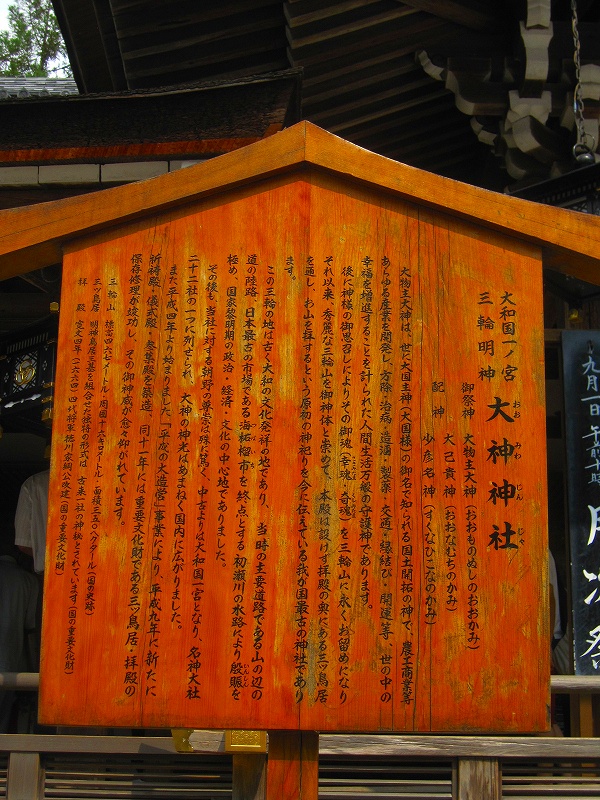 大和国一ノ宮
三輪明神
大神神社
おお みわ じん じゃ
御祭神 大物主大神(おおものぬしのおおかみ)
配神 大己貴神(おおなむちのかみ)
少彦名神(すくなひこなのかみ)
大物主大神は、世に大国主神(大国様)の御名で知られる国土開拓の神で、農工商業等
あらゆる産業を開発し、方除・治病・造酒・製薬・交通・縁結び・開運等、世の中の
幸福を増進することを計られた人間生活万般の守護神であります。
後に神様の御思召しによりその御魂(幸魂、奇魂)を三輪山に永くお留めになり
それ以来、秀麗な三輪山を御神体と崇めて、本殿は設けず拝殿の奥にある三ツ鳥居
を通し、お山を拝するという原初の神祀りを今に伝えている我が国最古の神社であり
ます。
この三輪の地は古く大和の文化発祥の地であり、当時の主要道路である山の辺の
道の陸路、日本最古の市場である海柘榴市を終点とする初瀬川の水路により殷賑を
いんしん
極め、国家黎明期の政治・経済・文化の中心地でありました。
その後も、当社に対する朝野の尊崇は殊に篤く、中古よりは大和国一宮となり、名神大社
二十二社の一つに列せられ、大神の神光はあまねく国内に広がりました。
また平成四年より始まりました「平成の大造営」事業により、平成九年に新たに
祈祷殿・儀式殿・参集殿を築造、同十一年には重要文化財である三ツ鳥居・拝殿の
保存修理が竣功し、その御神威が愈々仰がれています。
三輪山 標高四六七メートル・周囲十六キロメートル・面積三五〇ヘクタール(国の史跡)
三ツ鳥居 明神鳥居三基を組合せた独特の形式は、古来一社の神秘とされています(国の重要文化財)
拝殿 寛文四年(一六六四)四代将軍徳川家綱公改建(国の重要文化財)
九月一日
月次祭